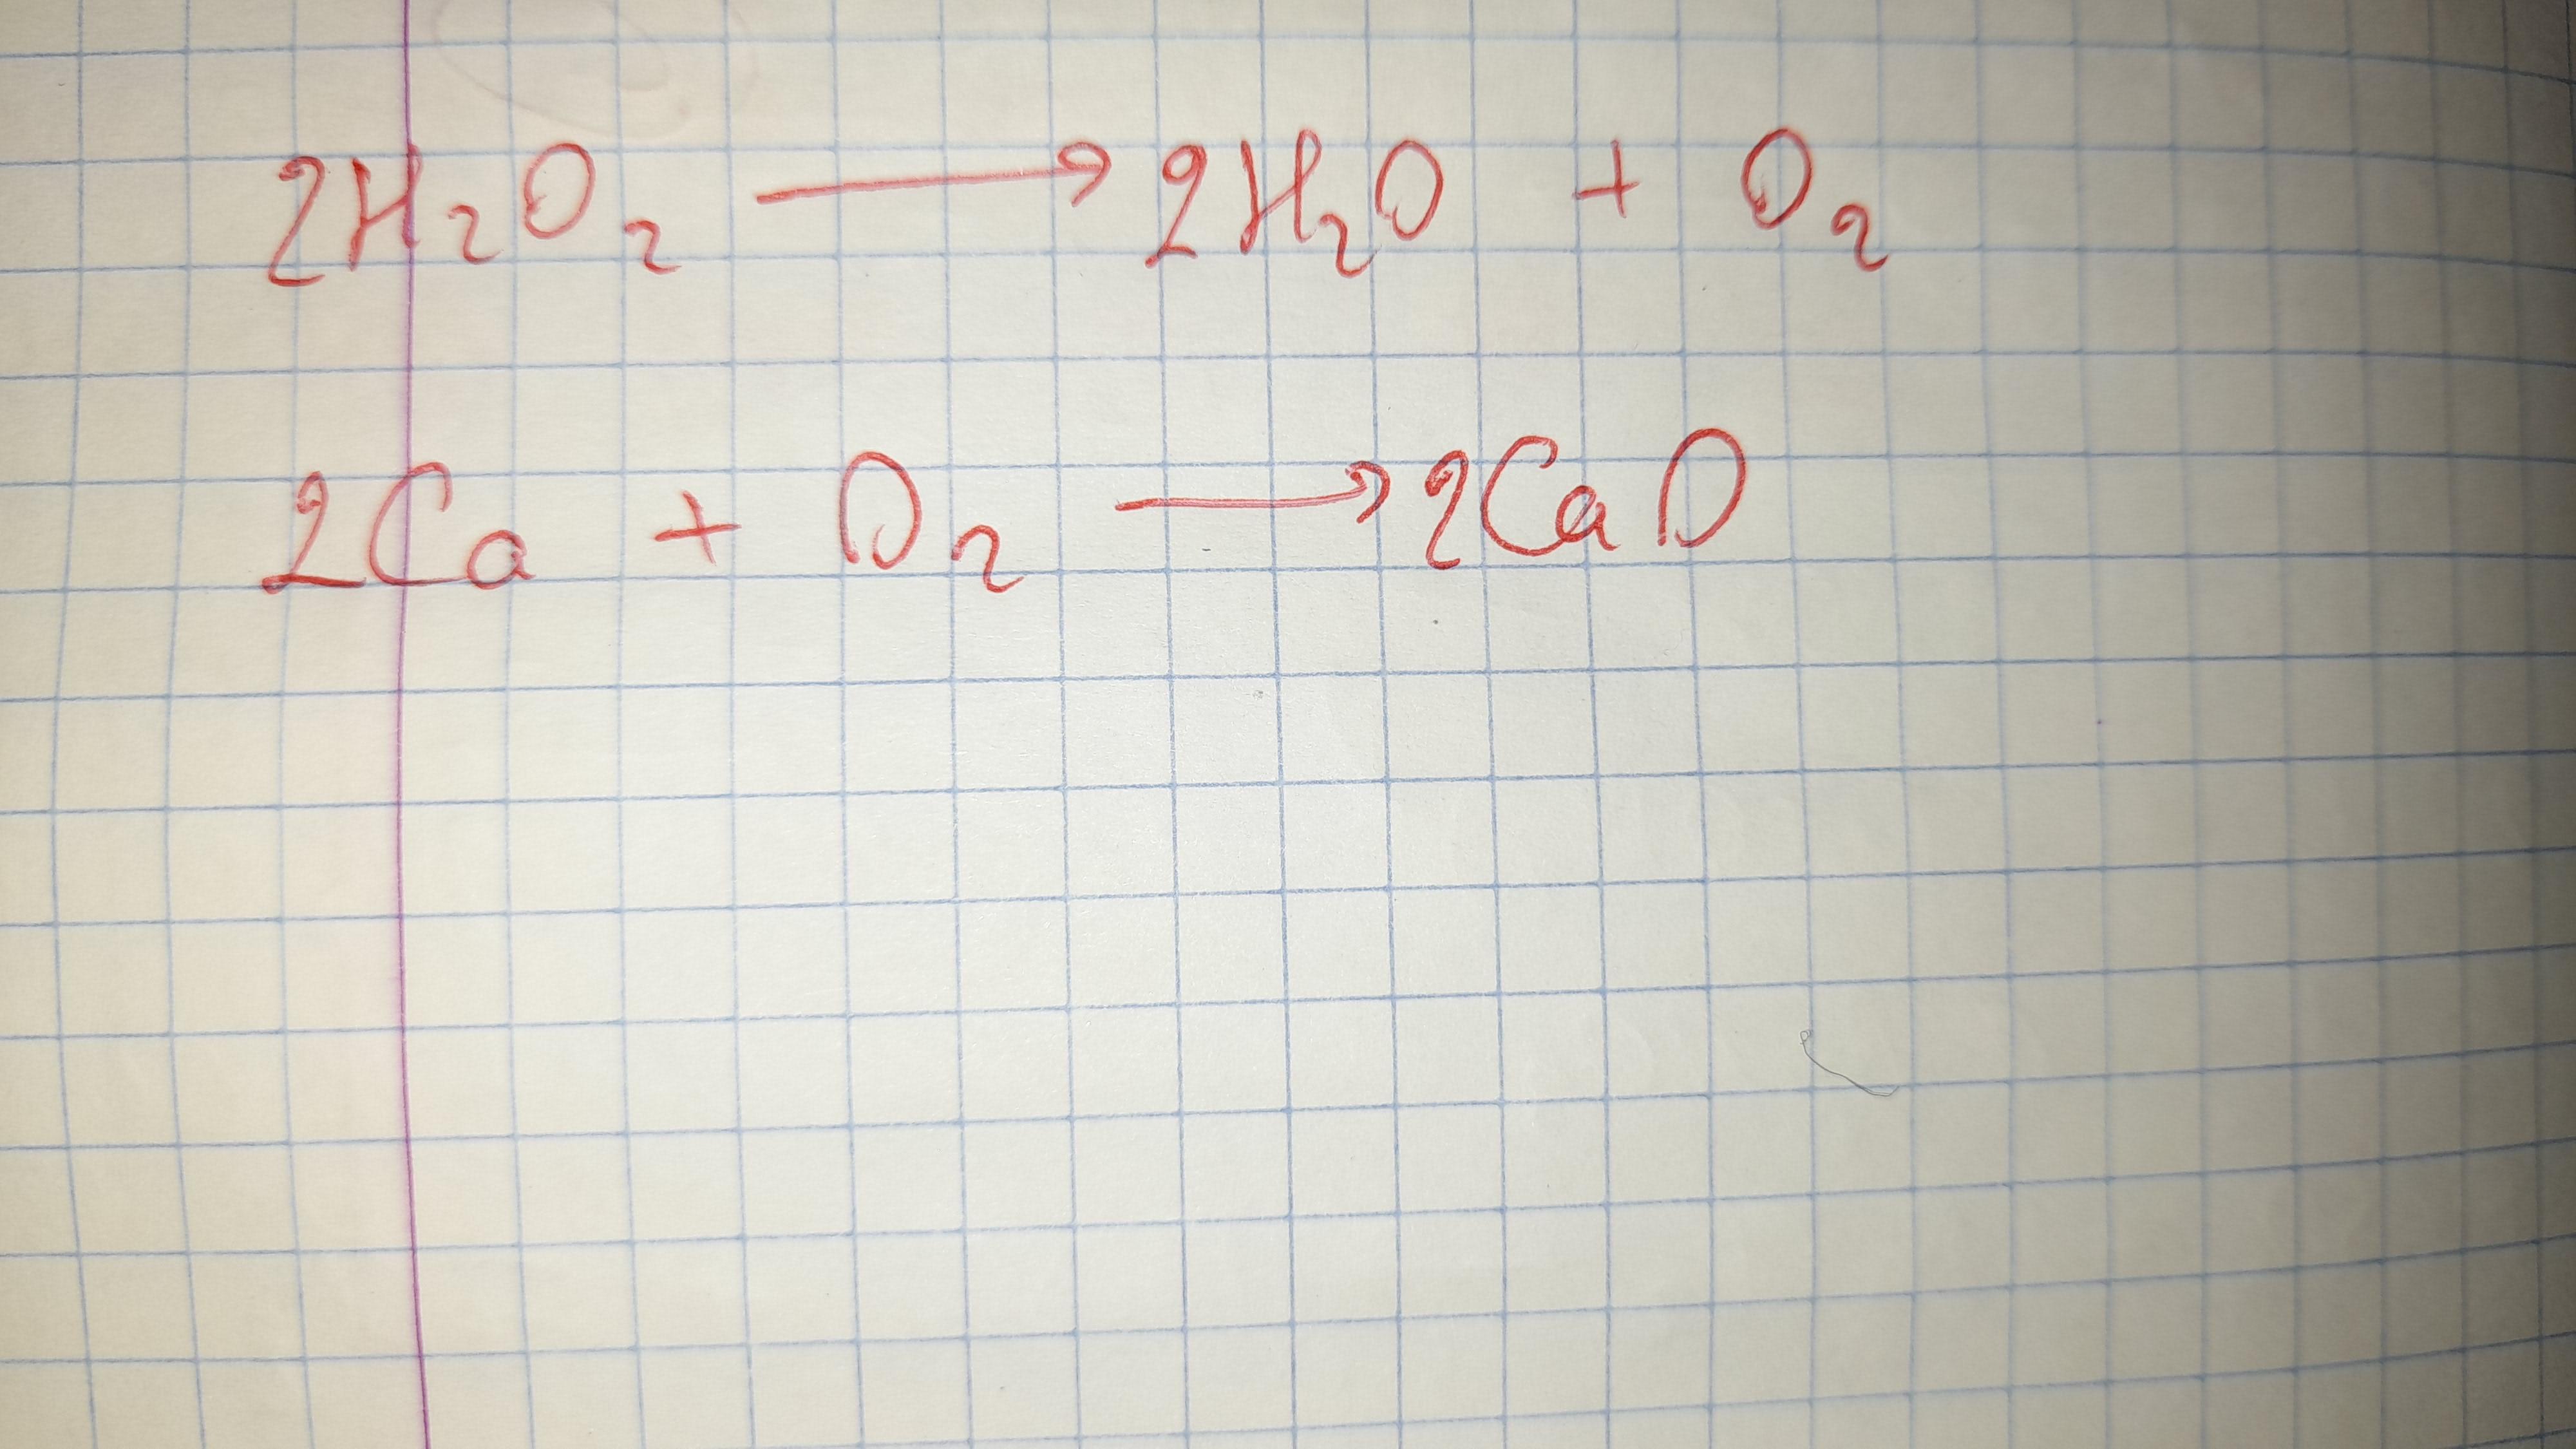 2H₂O₂ → 2H₂O + O₂
2Ca + O₂ → 2CaO